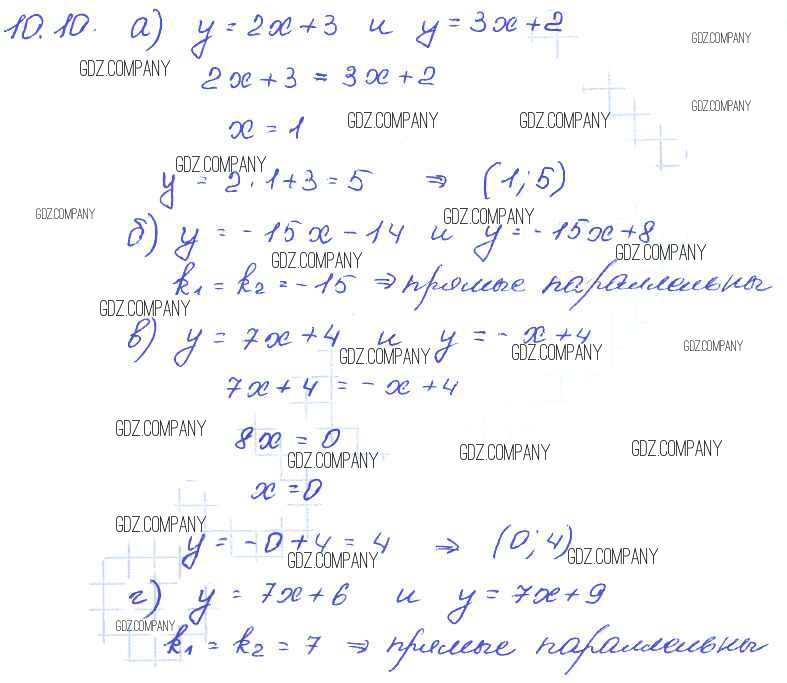 10.10. а) y = 2x + 3 и y = 3x + 2
GDZ.COMPANY
GDZ.COMPANY 2x + 3 = 3x + 2
GDZ.COMPANY
x = 1 GDZ.COMPANY GDZ.COMPANY
GDZ.COMPANY
y = 2 · 1 + 3 = 5 ⇒ (1; 5)
GDZ.COMPANY GDZ.COMPANY
б) y = -15x - 14 и y = -15x + 8
GDZ.COMPANY GDZ.COMPANY
k1 = k2 = -15 ⇒ прямые параллельны
GDZ.COMPANY
в) y = 7x + 4 и y = -x + 4
GDZ.COMPANY GDZ.COMPANY GDZ.COMPANY
7x + 4 = -x + 4
GDZ.COMPANY 8x = 0
GDZ.COMPANY GDZ.COMPANY GDZ.COMPANY
x = 0
GDZ.COMPANY
y = -0 + 4 = 4 ⇒ (0; 4)
GDZ.COMPANY GDZ.COMPANY
г) y = 7x + 6 и y = 7x + 9
GDZ.COMPANY
k1 = k2 = 7 ⇒ прямые параллельны